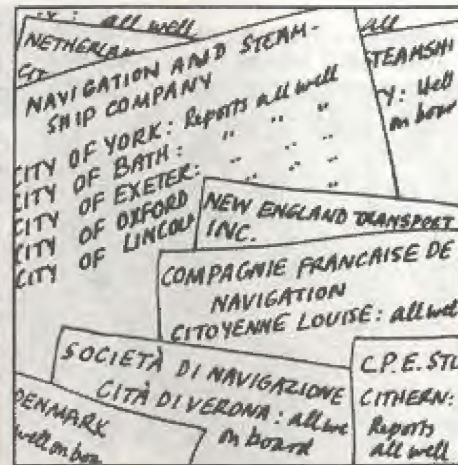 : all well
NETHERLAN
NAVIGATION AND STEAM-
SHIP COMPANY
CITY OF YORK: Reports all well
CITY OF BATH: " " "
CITY OF EXETER: " " "
CITY OF OXFORD " "
CITY OF LINCOLN
CITY OF
all
STEAMSHI
TY: Well
on boar
NEW ENGLAND TRANSPORT
INC.
COMPAGNIE FRANCAISE DE
NAVIGATION
CITOYENNE LOUISE: all well
SOCIETÀ DI NAVIGAZIONE
CITÀ DI VERONA: all we
on board
C.P.E. STU
CITHERN:
Reports
all well
DENMARK
well on boa